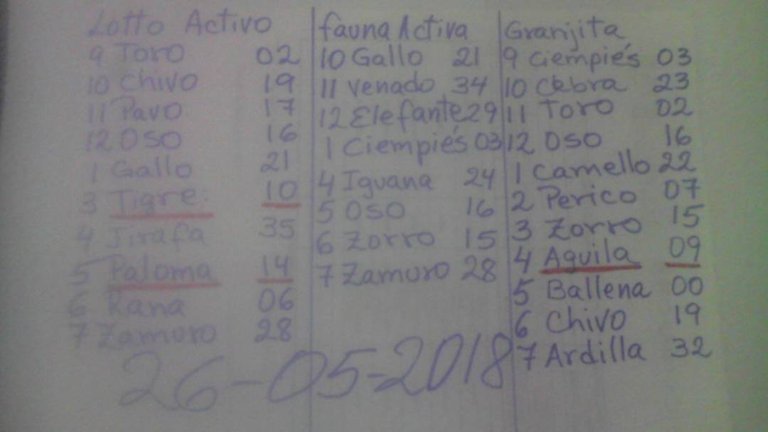 Lotto Activo
9 Toro 02
10 Chivo 19
11 Pavo 17
12 Oso 16
1 Gallo 21
3 Tigre 10
4 Jirafa 35
5 Paloma 14
6 Rana 06
7 Zamuro 28
fauna Activa
10 Gallo 21
11 venado 34
12 Elefante 29
1 Ciempiés 03
4 Iguana 24
5 Oso 16
6 Zorro 15
7 Zamuro 28
Granjita
9 Ciempiés 03
10 Cebra 23
11 Toro 02
12 Oso 16
1 Camello 22
2 Perico 07
3 Zorro 15
4 Aguila 09
5 Ballena 00
6 Chivo 19
7 Ardilla 32
26-05-2018